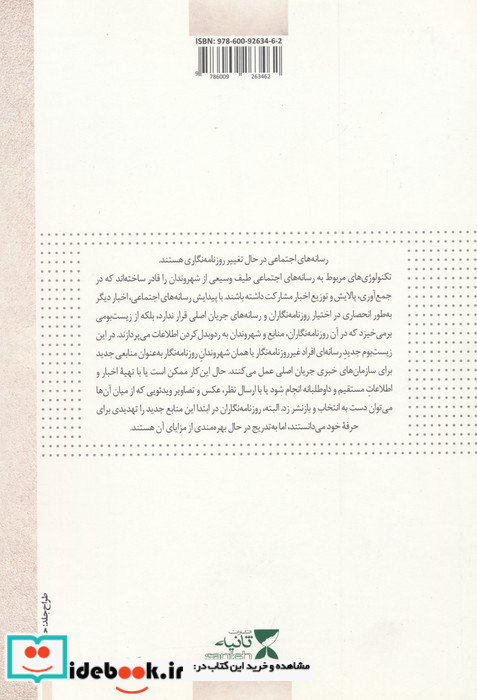 ISBN: 978-600-92634-6-2
9 786009 263462
رسانه‌های اجتماعی در حال تغییر روزنامه‌نگاری هستند.
تکنولوژی‌های مربوط به رسانه‌های اجتماعی طیف وسیعی از شهروندان را قادر ساخته‌اند که در
جمع‌آوری، پالایش و توزیع اخبار مشارکت داشته باشند. با پیدایش رسانه‌های اجتماعی، اخبار دیگر
به‌طور انحصاری در اختیار روزنامه‌نگاران و رسانه‌های جریان اصلی قرار ندارد، بلکه از زیست‌بومی
برمی‌خیزد که در آن روزنامه‌نگاران، منابع و شهروندان به ردوبدل کردن اطلاعات می‌پردازند. در این
زیست‌بوم جدیدِ رسانه‌ای افراد غیرروزنامه‌نگار یا همان شهروندان روزنامه‌نگار به‌عنوان منابعی جدید
برای سازمان‌های خبری جریان اصلی عمل می‌کنند. حال این کار ممکن است یا با تهیهٔ اخبار و
اطلاعاتِ مستقیم و داوطلبانه انجام شود یا با ارسال نظر، عکس و تصاویر ویدئویی که از میان آن‌ها
می‌توان دست به انتخاب و بازنشر زد. البته، روزنامه‌نگاران در ابتدا این منابع جدید را تهدیدی برای
حرفهٔ خود می‌دانستند، اما به‌تدریج در حال بهره‌مندی از مزایای آن هستند.
طراح جلد:
نشر
ثانیه
sanieh
مشاهده و خرید این کتاب در:
idebook.ir